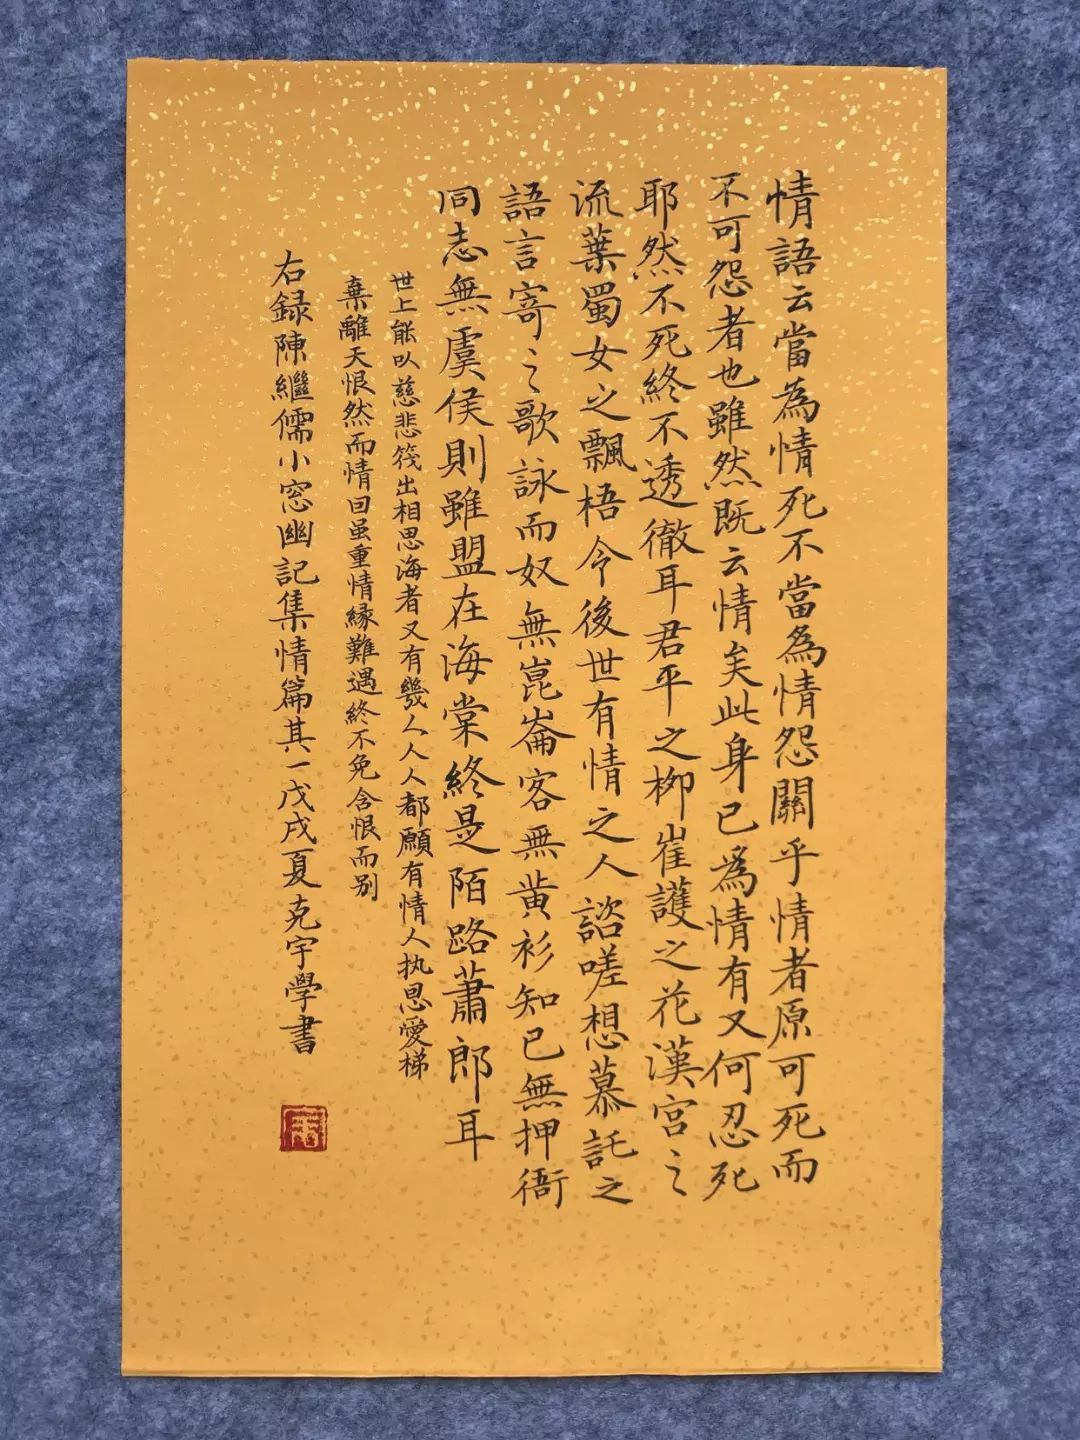 情語云當為情死不當為情怨關乎情者原可死而
不可怨者也雖然既云情矣此身已為情有又何忍死
耶然不死終不透徹耳君平之柳崔護之花漢宮之
流葉蜀女之飄梧令後世有情之人諮嗟想慕託之
語言寄之歌詠而奴無崑崙客無黃衫知己無押衙
同志無虞侯則雖盟在海棠終是陌路蕭郎耳
世上能以慈悲筏出相思海者又有幾人人人都願有情人执恩愛梯
棄離天恨然而情回虽重情緣難遇終不免含恨而别
右録陳繼儒小窓幽記集情篇其一戊戌夏克宇學書